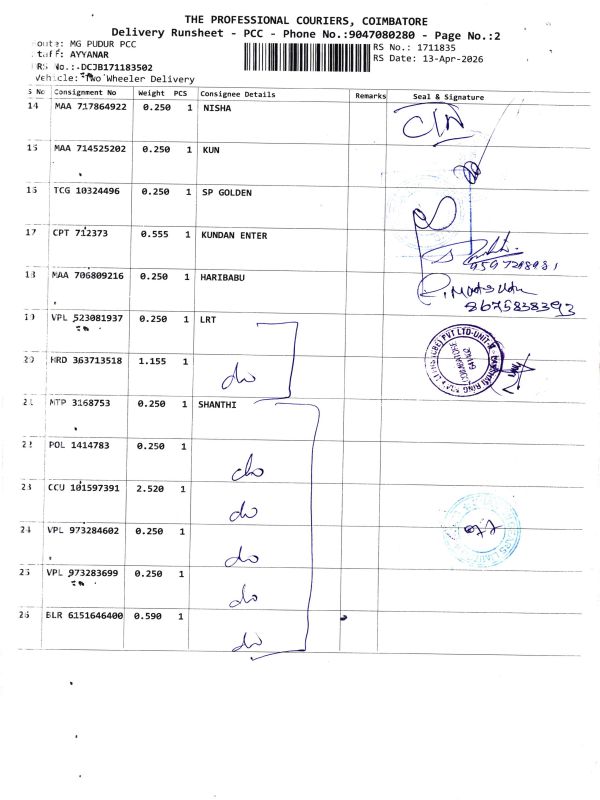 THE PROFESSIONAL COURIERS, COIMBATORE
Delivery Runsheet - PCC - Phone No.:9047080280 - Page No.:2
oute: MG PUDUR PCC
taff: AYYANAR
RS No.:-DCJB171183502
Vehicle: Two Wheeler Delivery
RS No.: 1711835
RS Date: 13-Apr-2026
S No Consignment No Weight PCS Consignee Details Remarks Seal & Signature
14 MAA 717864922 0.250 1 NISHA
15 MAA 714525202 0.250 1 KUN
16 TCG 10324496 0.250 1 SP GOLDEN
17 CPT 712373 0.555 1 KUNDAN ENTER
18 MAA 706809216 0.250 1 HARIBABU
8675838393
19 VPL 523081937 0.250 1 LRT
20 HRD 363713518 1.155 1 do
21 MTP 3168753 0.250 1 SHANTHI
22 POL 1414783 0.250 1 do
23 CCU 101597391 2.520 1 do
24 VPL 973284602 0.250 1 do
25 VPL 973283699 0.250 1 do
26 BLR 6151646400 0.590 1 do